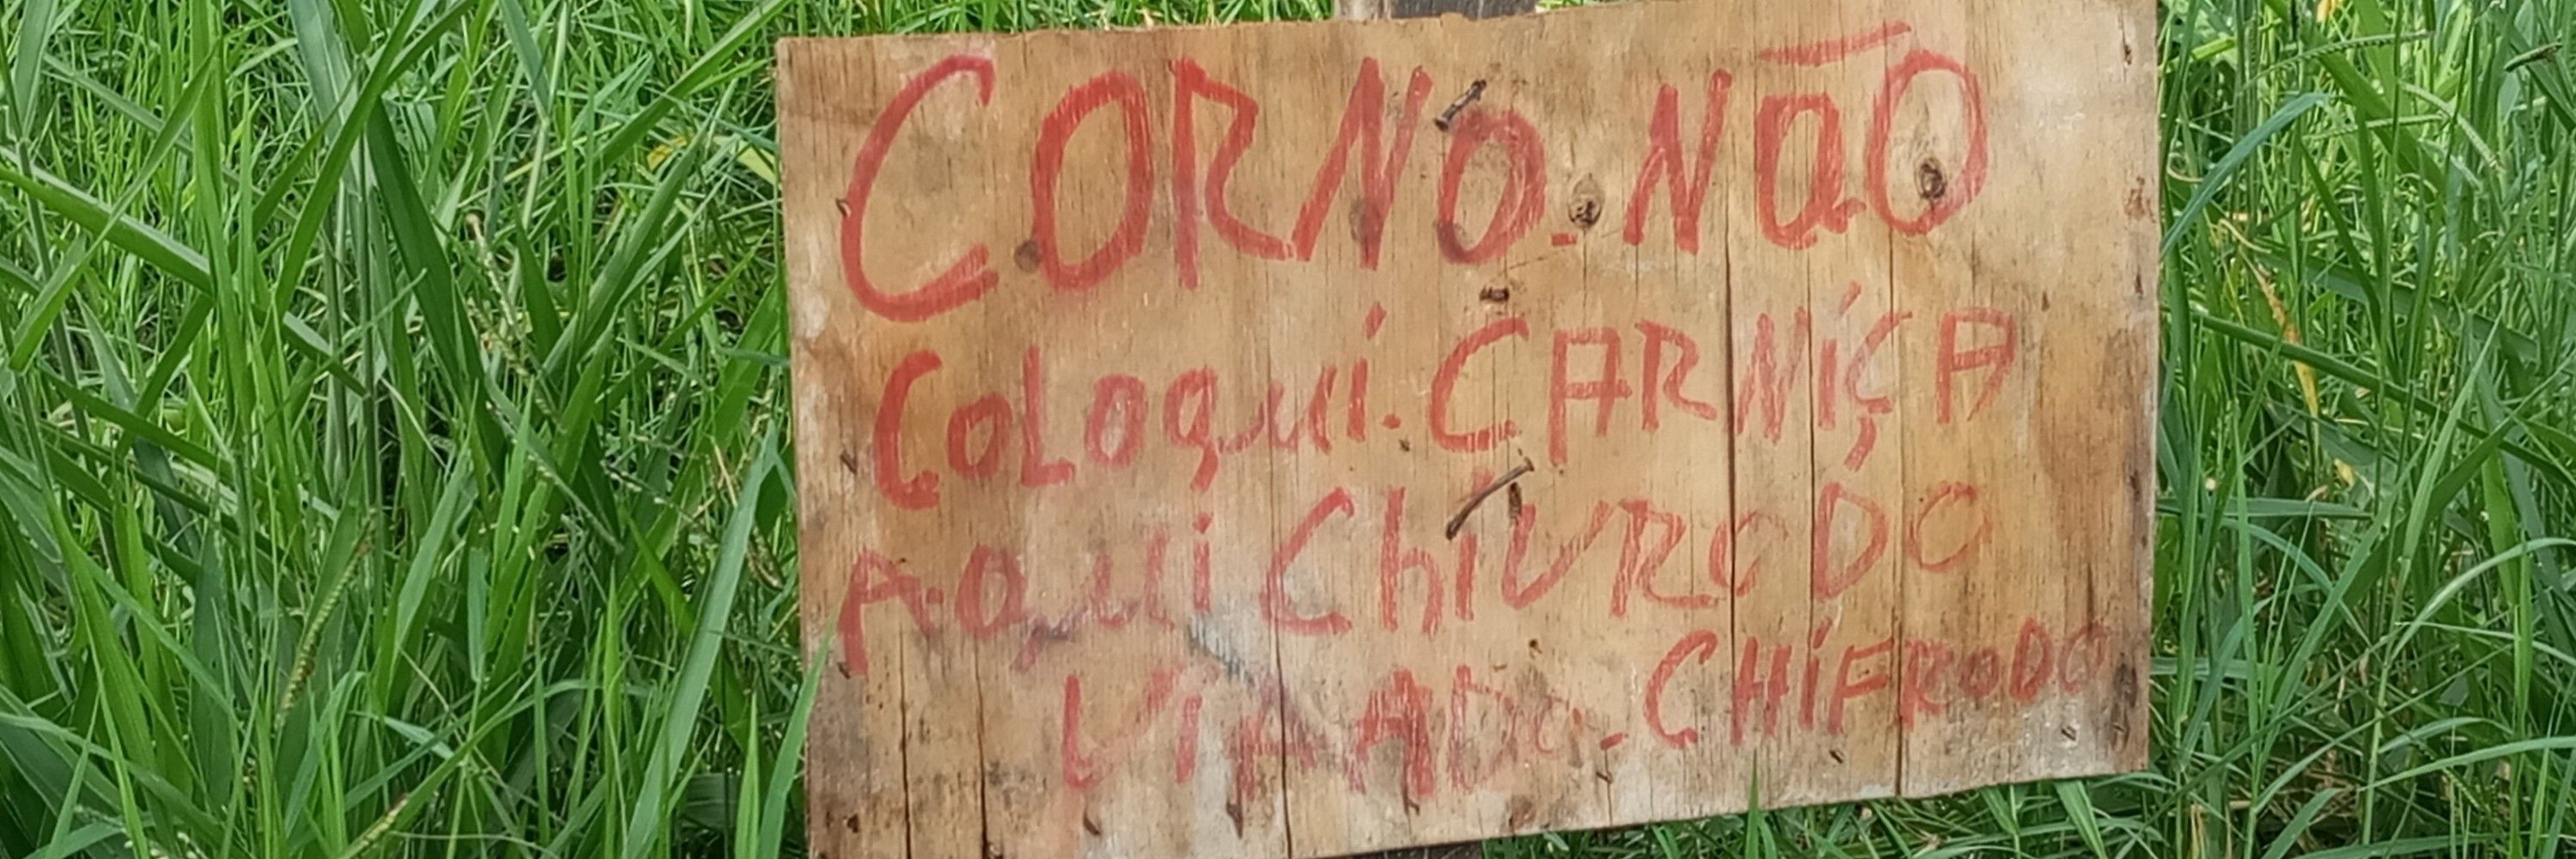 CORNO. NãO
COLOqui. CARNiÇA
AQui ChIVRODO
ViAADO. CHIFRODO